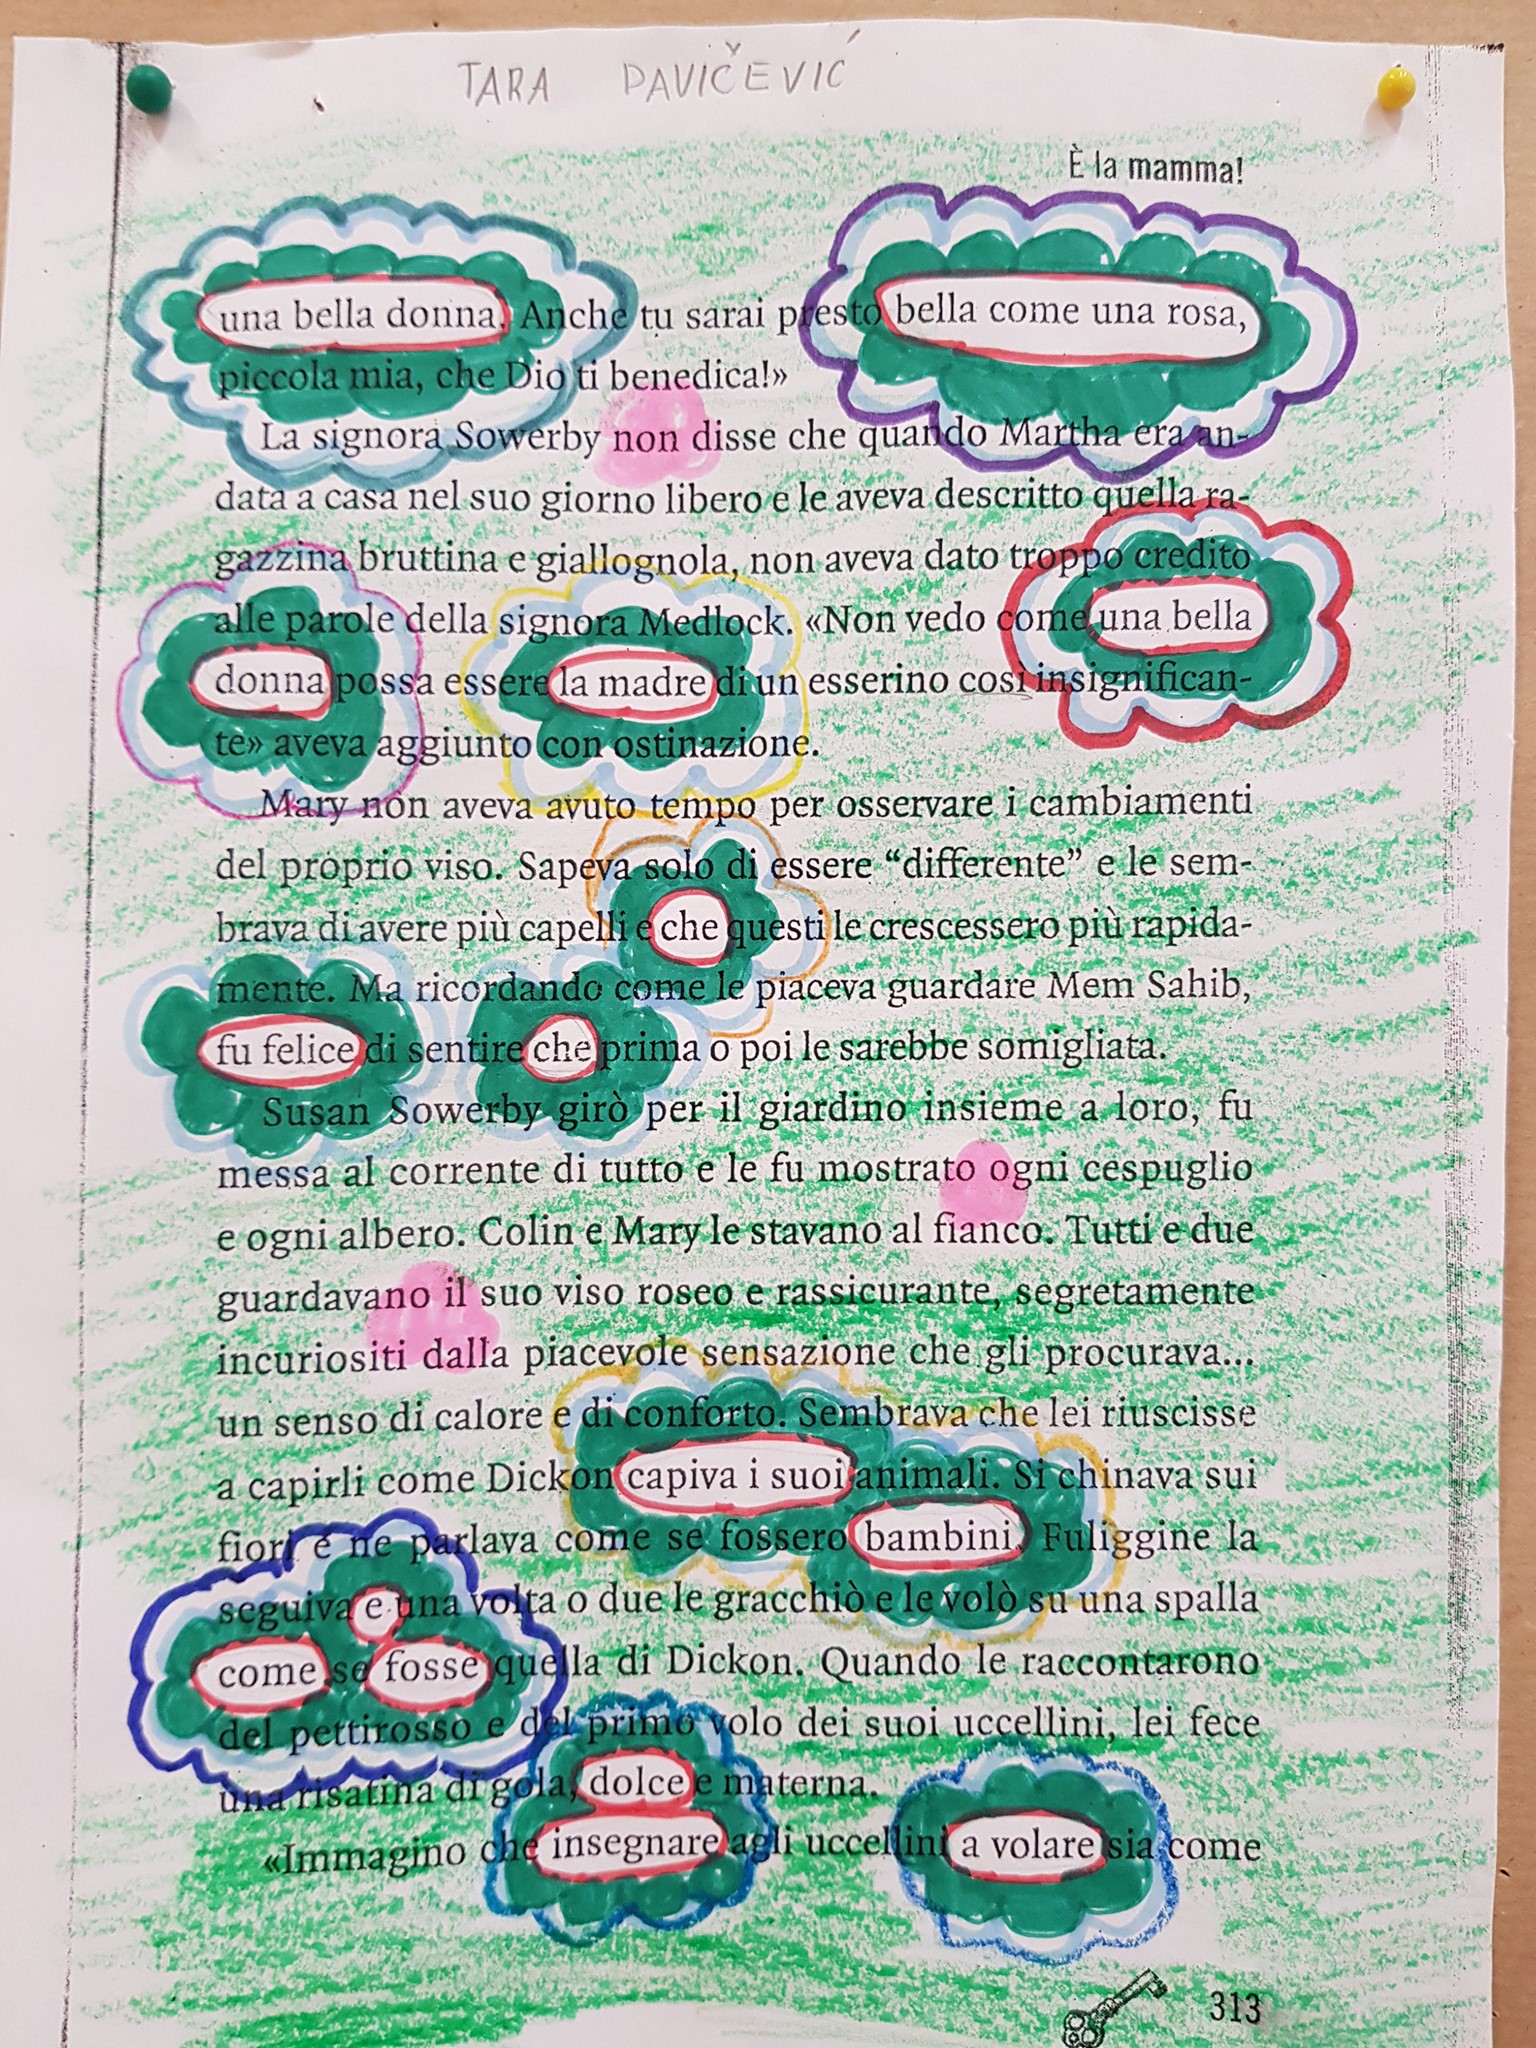 TARA PAVIČEVIĆ
È la mamma!
una bella donna. Anche tu sarai presto bella come una rosa,
piccola mia, che Dio ti benedica!»
La signora Sowerby non disse che quando Martha era an-
data a casa nel suo giorno libero e le aveva descritto quella ra-
gazzina bruttina e giallognola, non aveva dato troppo credito
alle parole della signora Medlock. «Non vedo come una bella
donna possa essere la madre di un esserino così insignifican-
te» aveva aggiunto con ostinazione.
Mary non aveva avuto tempo per osservare i cambiamenti
del proprio viso. Sapeva solo di essere “differente” e le sem-
brava di avere più capelli e che questi le crescessero più rapida-
mente. Ma ricordando come le piaceva guardare Mem Sahib,
fu felice di sentire che prima o poi le sarebbe somigliata.
Susan Sowerby girò per il giardino insieme a loro, fu
messa al corrente di tutto e le fu mostrato ogni cespuglio
e ogni albero. Colin e Mary le stavano al fianco. Tutti e due
guardavano il suo viso roseo e rassicurante, segretamente
incuriositi dalla piacevole sensazione che gli procurava...
un senso di calore e di conforto. Sembrava che lei riuscisse
a capirli come Dickon capiva i suoi animali. Si chinava sui
fiori e ne parlava come se fossero bambini. Fuliggine la
seguiva e una volta o due le gracchiò e le volò su una spalla
come se fosse quella di Dickon. Quando le raccontarono
del pettirosso e del primo volo dei suoi uccellini, lei fece
una risatina di gola, dolce e materna.
«Immagino che insegnare agli uccellini a volare sia come
313